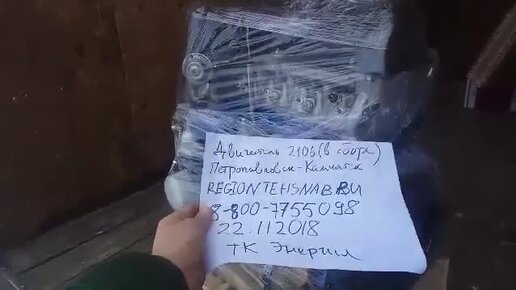 Двигатель 2106 (в сборе)
Петропавловск-Камчатск
REGIONTEHSNAB.RU
8-800-7755098
22.11.2018
ТК Энергия